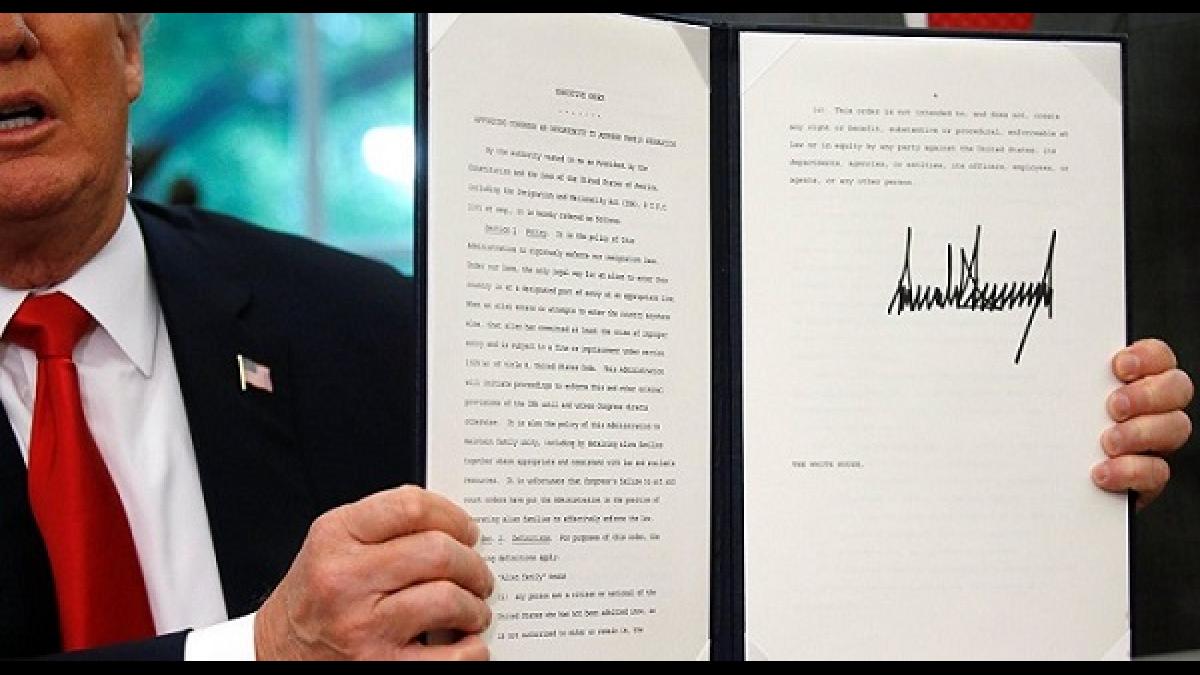 EXECUTIVE ORDER
AFFORDING CONGRESS AN OPPORTUNITY TO ADDRESS FAMILY SEPARATION
By the authority vested in me as President by the
Constitution and the laws of the United States of America,
including the Immigration and Nationality Act (INA), 8 U.S.C.
1101 et seq., it is hereby ordered as follows:
Section 1. Policy. It is the policy of this
Administration to rigorously enforce our immigration laws.
Under our laws, the only legal way for an alien to enter this
country is at a designated port of entry at an appropriate time.
When an alien enters or attempts to enter the country anywhere
else, that alien has committed at least the crime of improper
entry and is subject to a fine or imprisonment under section
1325(a) of title 8, United States Code. This Administration
will initiate proceedings to enforce this and other criminal
provisions of the INA until and unless Congress directs
otherwise. It is also the policy of this Administration to
maintain family unity, including by detaining alien families
together where appropriate and consistent with law and available
resources. It is unfortunate that Congress's failure to act and
court orders have put the Administration in the position of
separating alien families to effectively enforce the law.
Sec. 2. Definitions. For purposes of this order, the
definitions apply:
"Alien family" means
(i) any person not a citizen or national of the
United States who has not been admitted into, or
is not authorized to enter or remain in, the
(c) This order is not intended to, and does not, create
any right or benefit, substantive or procedural, enforceable at
law or in equity by any party against the United States, its
departments, agencies, or entities, its officers, employees, or
agents, or any other person.
Donald Trump
THE WHITE HOUSE,